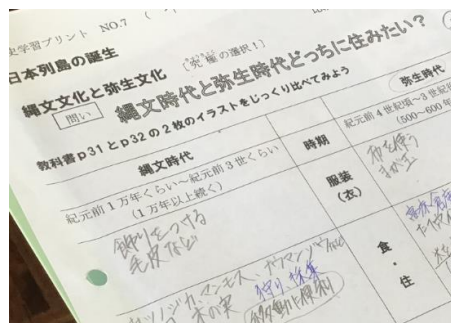 史学習プリント NO.7 (
日本列島の誕生
縄文文化と弥生文化 [究極の選択!]
問い 縄文時代と弥生時代どっちに住みたい?
教科書p31とp32の2枚のイラストをじっくり比べてみよう
縄文時代
時期
弥生時代
紀元前1万年くらい~紀元前3世紀くらい
(1万年以上続く)
紀元前4世紀頃~3世紀
(500~600年
服装
(衣)
飾りをつける
毛皮など
布を使う
まが玉
食・住
マンモス、ナウマンゾウ
狩り、採集
木の実
移動に便利